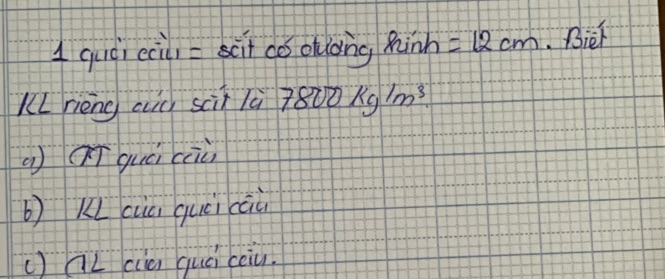 1 quả cầu = sắt có đường kính = 12 cm. Biết
KL riêng của sắt là 7800 Kg/m³.
a) TT quả cầu
b) KL của quả cầu
c) TL của quả cầu.